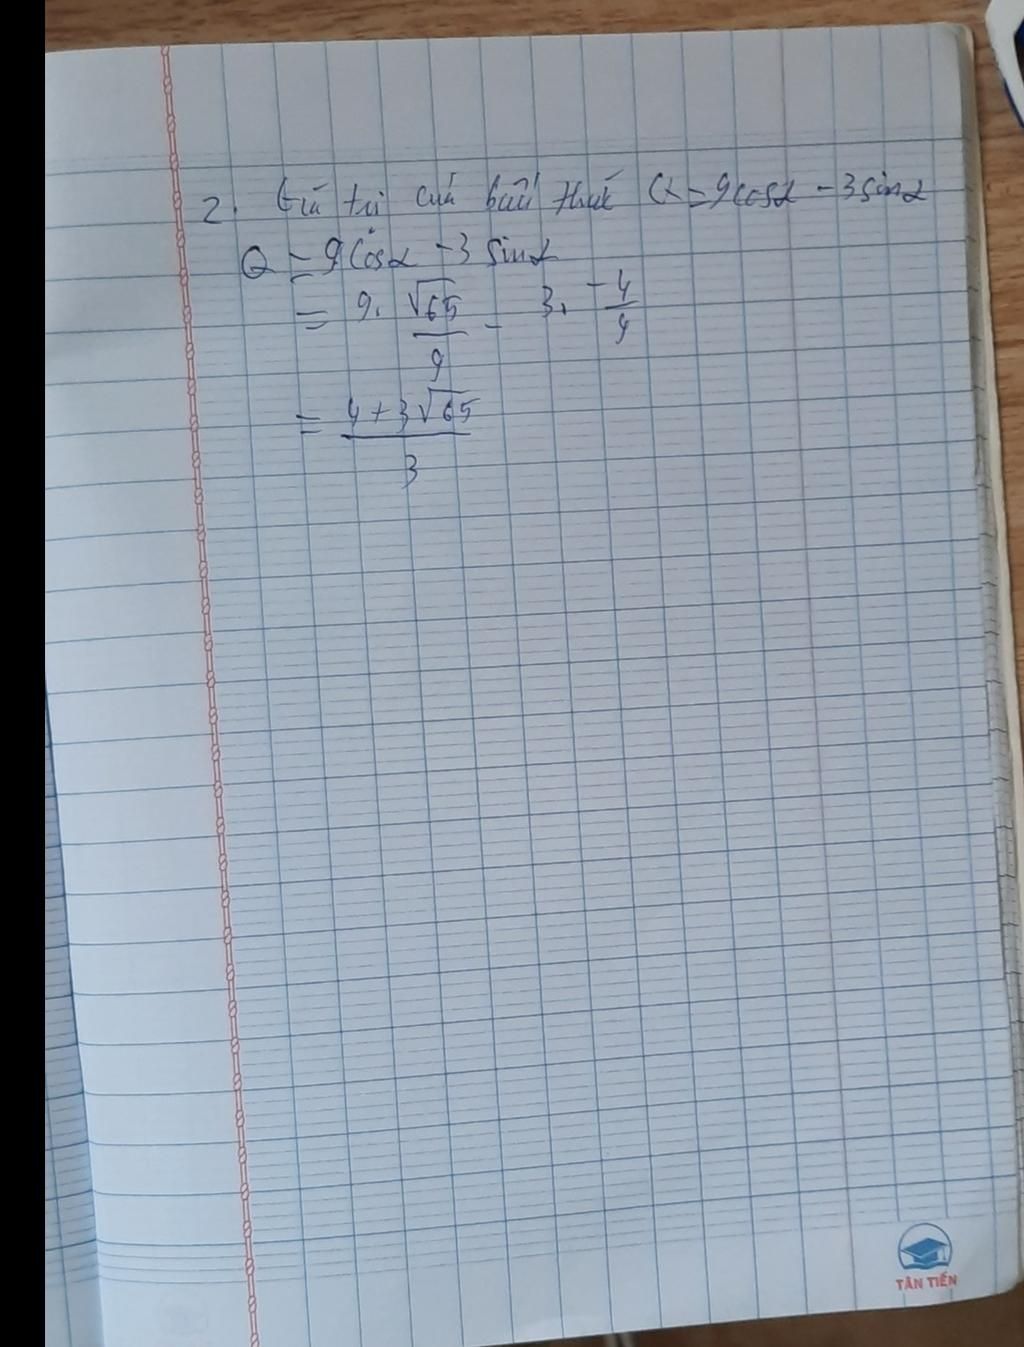 2. Giá trị của biểu thức Q = 9cosα - 3sinα
Q = 9cosα - 3 sinα
= 9. √65/9 - 3. -4/9
= 4+3√65/3
TÂN TIẾN